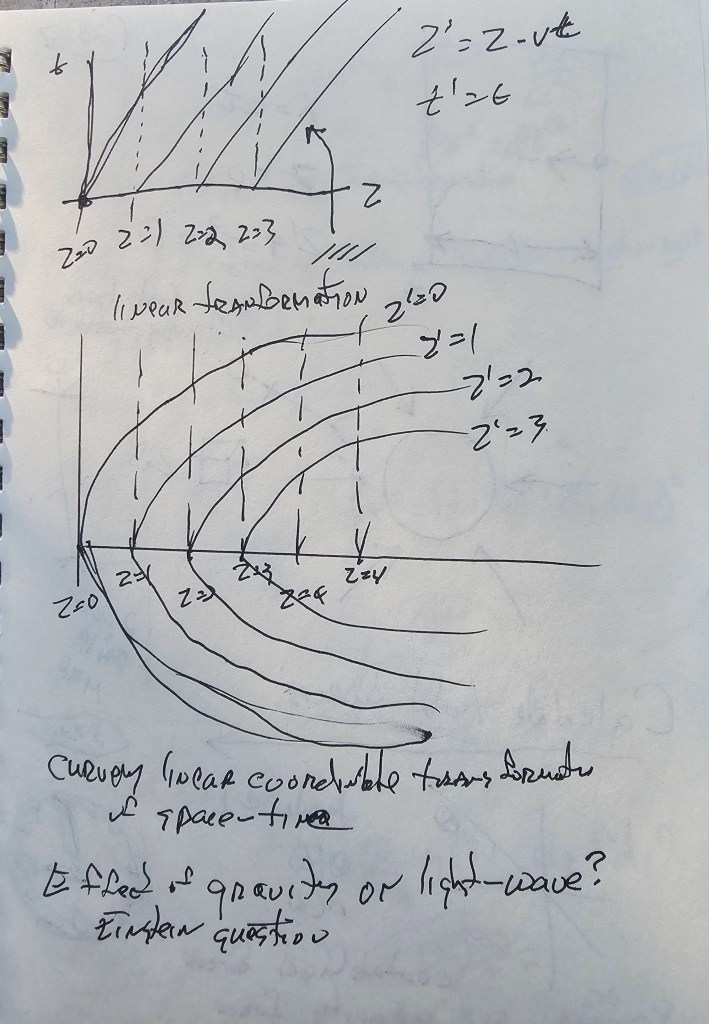 z' = z - vt
t' = t
t
z
z=0 z=1 z=2 z=3
linear transformation
z'=0
z'=1
z'=2
z'=3
z=0 z=1 z=2 z=3 z=4 z=4
Curvey linear coordinate transformatio
of space-time
Effect of gravity on light-wave?
Einstein question